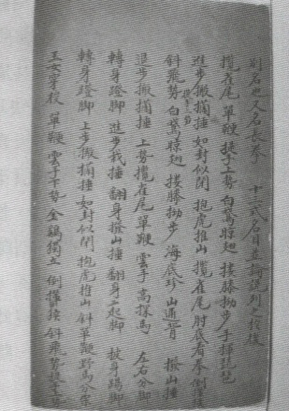 則名也又名長拳 十三式名目並論說列之於後
攬雀尾 單鞭 提手上勢 白鶩晾翅 摟膝拗步 手揮琵琶
進步搬攔捶 如封似閉 抱虎推山 攬雀尾 肘底看拳 倒攆
斜飛勢 提手上勢 白鶩晾翅 摟膝拗步 海底珍 山通背 撇山捶
退步搬攔捶 上勢攬雀尾 單鞭 雲手 高探馬 左右分脚
轉身蹬脚 進步栽捶 翻身撇山捶 翻身二起脚 披身踢脚
轉身蹬脚 上步搬攔捶 如封似閉 抱虎推山 斜單鞭 野馬分鬃
玉女穿梭 單鞭 雲手下勢 金鷄獨立 倒攆猴 斜飛勢